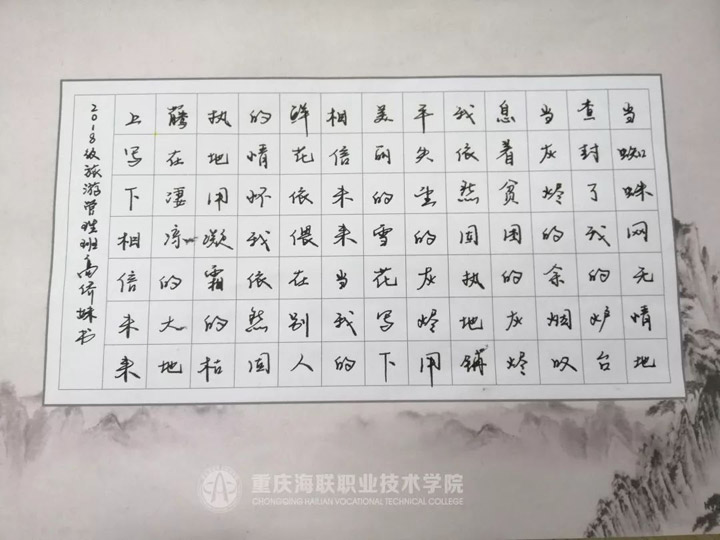 当蜘蛛网无情地
查封了我的炉台
当灰烬的余烟叹
息着贫困的灰烬
我依然固执地铺
平失望的灰烬用
美丽的雪花写下
相信未来当我的
鲜花依偎在别人
的情怀我依然固
执地用凝霜的枯
藤在凄凉的大地
上写下相信未来
2018级旅游管理班高侨妹书
重庆海联职业技术学院
CHONGQING HAILIAN VOCATIONAL TECHNICAL COLLEGE